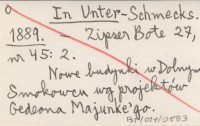 In Unter-Schmecks.
1889. - Zipser Bote 27,
nr 45: 2.
Nowe budynki w Dolnym
Smokowcu wg projektów
Gedeona Majunke'go.